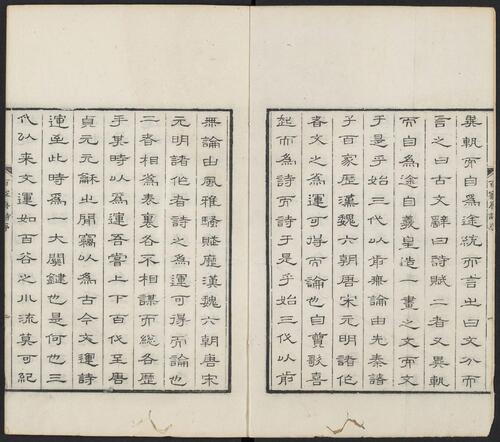 異軌而自為途統而言之曰文分而
言之曰古文辭曰詩賦二者又異軌
而自為途自羲皇造一畫之文而文
于是乎始三代以前無論由先秦諸
子百家歷漢魏六朝唐宋元明諸作
者文之為運可得而論也自賡歌喜
起而為詩而詩于是乎始三代以前
無論由風雅騷賦歷漢魏六朝唐宋
元明諸作者詩之為運可得而論也
二者相為表裏各不相謀而總各歷
乎其時以為運吾嘗上下百代至唐
貞元元龢之間竊以為古今文運詩
運至此時為一大關鍵也是何也三
代以來文運如百谷之川流莫可紀